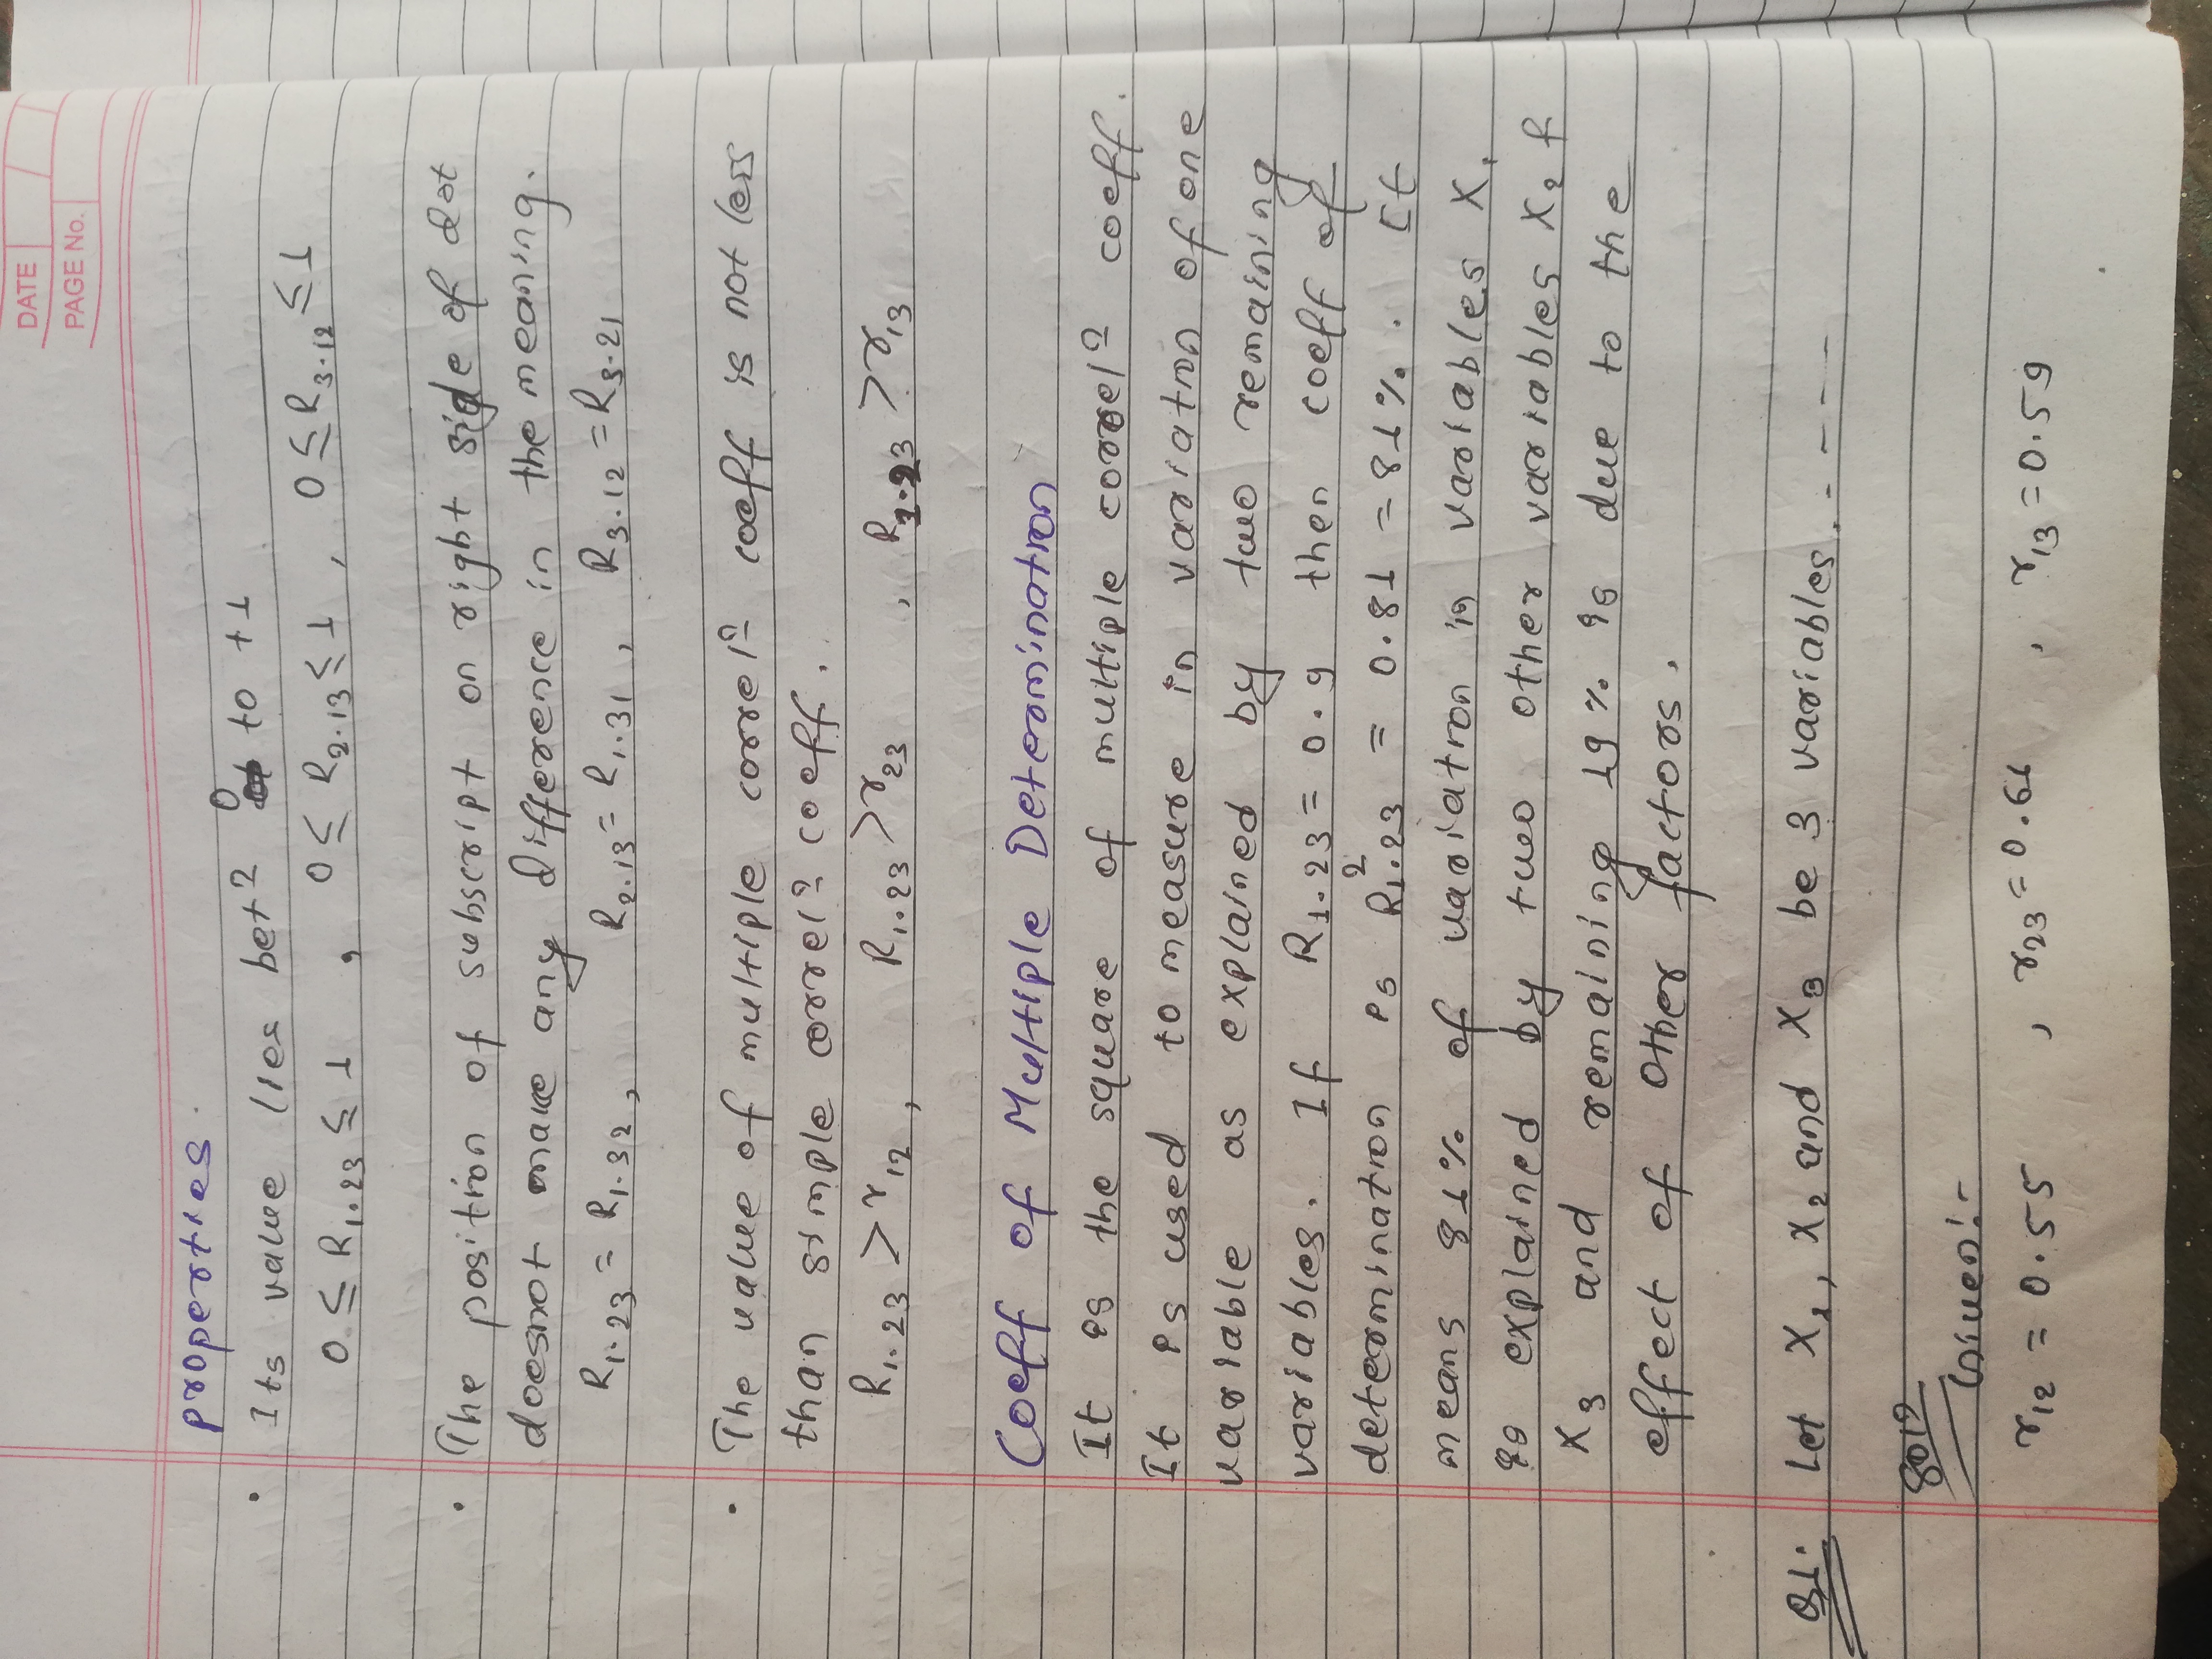 DATE
PAGE No.
properties.
• Its value lies betⁿ 0 to +1
0 ≤ R₁.₂₃ ≤ 1 , 0 ≤ R₂.₁₃ ≤ 1 , 0 ≤ R₃.₁₂ ≤ 1
• The position of subscript on right side of dot
doesnot make any difference in the meaning.
R₁.₂₃ = R₁.₃₂ , R₂.₁₃ = R₁.₃₁ , R₃.₁₂ = R₃.₂₁
• The value of multiple correlⁿ coeff is not less
than simple correlⁿ coeff.
R₁.₂₃ > r₁₂ , R₁.₂₃ > r₂₃ , R₁.₂₃ > r₁₃
Coeff of Multiple Determination
It is the square of multiple correlⁿ coeff.
It is used to measure in variation of one
variable as explained by two remaining
variables. If R₁.₂₃ = 0.9 then coeff of
determination is R²₁.₂₃ = 0.81 = 81%. It
means 81% of variation in variables X₁
is explained by two other variables X₂ &
X₃ and remaining 19% is due to the
effect of other factors.
Q1. Let X₁, X₂ and X₃ be 3 variables. - - - -
Solⁿ
Given:-
r₁₂ = 0.55 , r₂₃ = 0.61 , r₁₃ = 0.59